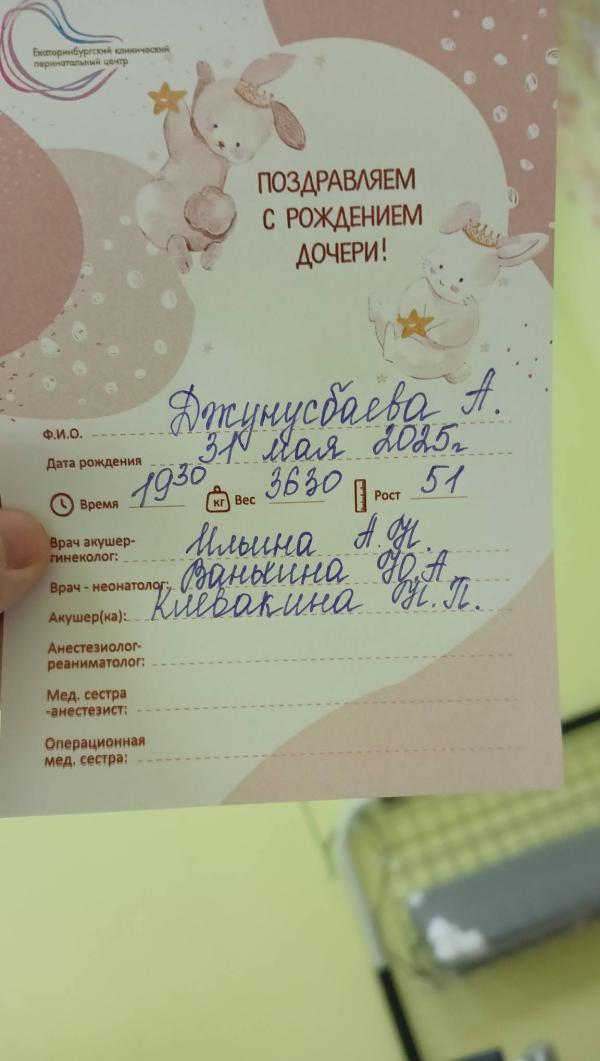 Екатеринбургский клинический
перинатальный центр
ПОЗДРАВЛЯЕМ
С РОЖДЕНИЕМ
ДОЧЕРИ!
Ф.И.О. Джунусбаева А.
Дата рождения 31 мая 2025г
Время 19 30 кг Вес 3630 Рост 51
Врач акушер-
гинеколог: Ильина А.Н.
Врач - неонатолог: Ванькина Ю.А.
Акушер(ка): Клевакина Н.П.
Анестезиолог-
реаниматолог:
Мед. сестра
-анестезист:
Операционная
мед. сестра: